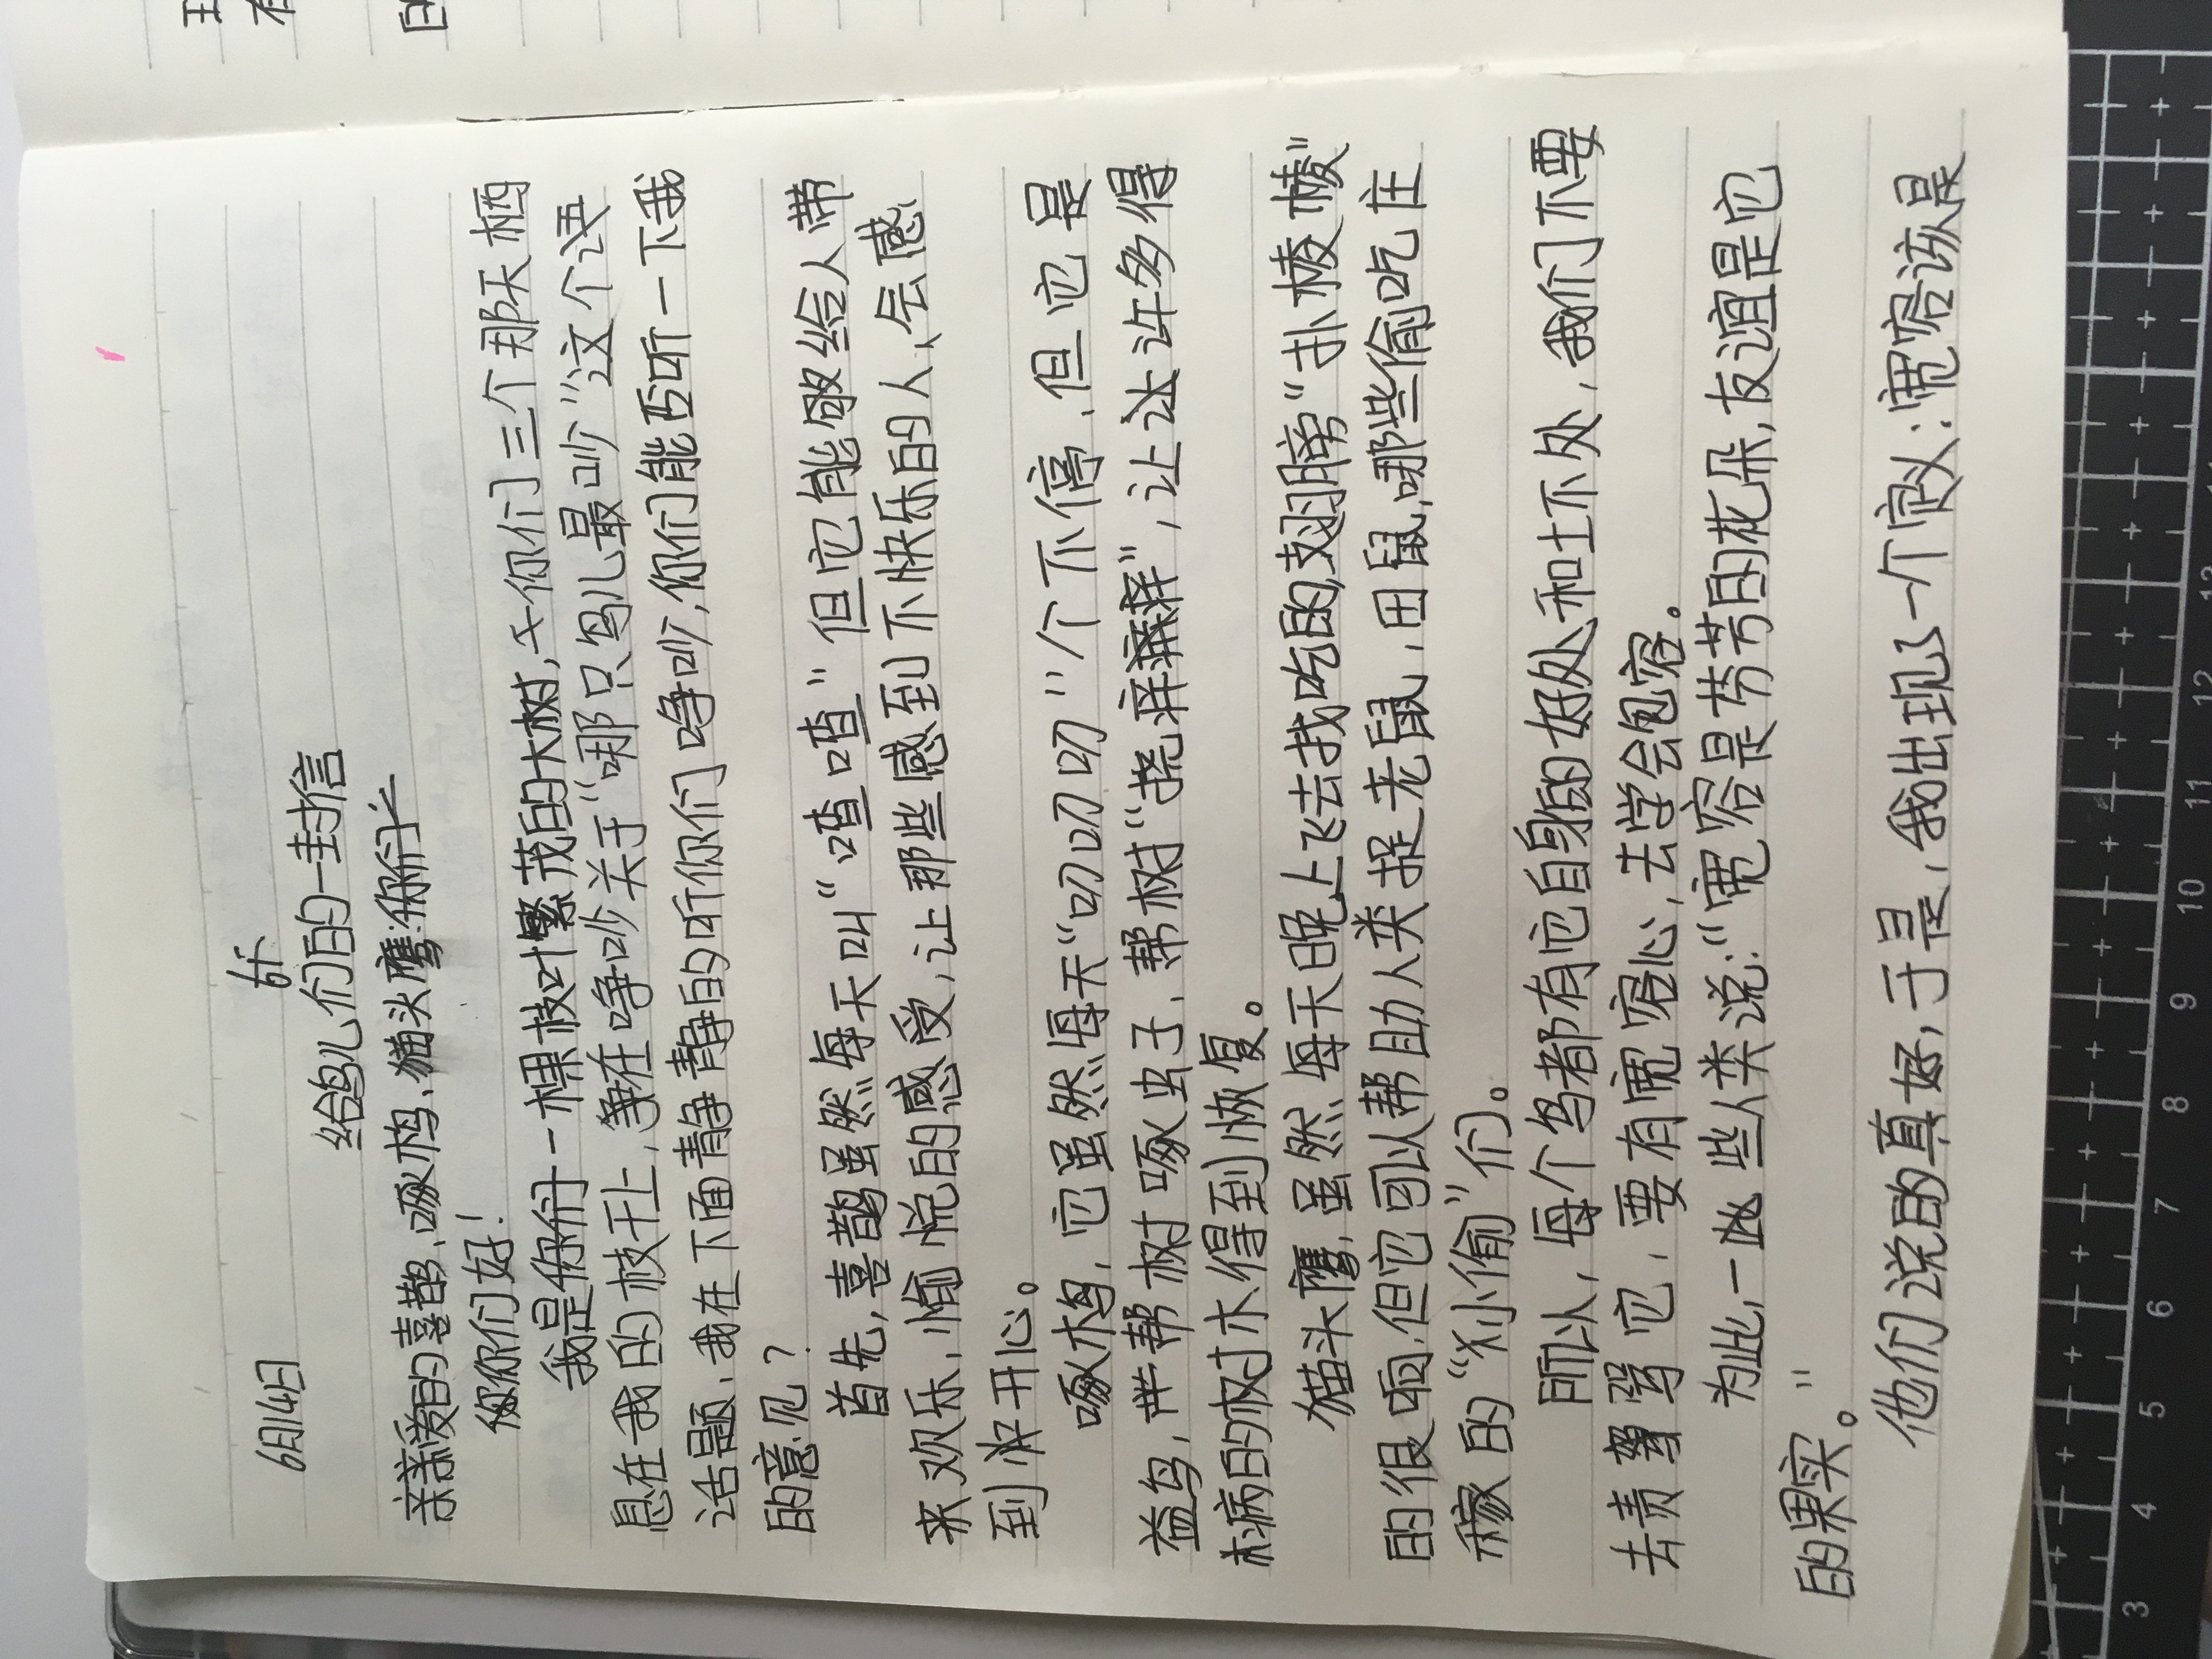 6月14日
给鸟儿们的一封信
亲爱的喜鹊、啄木鸟、猫头鹰:你们
你们好!
我是你们一棵枝叶繁茂的大树,你们三个那天栖
息在我的枝干上,争在争吵关于“哪只鸟儿最吵”这个语
话题、我在下面静静的听你们争吵,你们能否听一下我
的意见?
首先,喜鹊虽然每天叫“喳喳”但它能够给人带
来欢乐、愉悦的感受,让那些感到不快乐的人,会感
到开心。
啄木鸟,它虽然每天“叨叨叨”个不停,但它是
益鸟,帮树啄虫子、帮树“挠痒痒”,让许多得
病的树木得到恢复。
猫头鹰,虽然每天晚上飞去找吃的,翅膀“扑棱棱”
的很响,但它可以帮助人类捉老鼠,田鼠,哪些偷吃庄
稼的“小偷”们。
所以,每个鸟都有它自身的好处和坏处,我们不要
去责骂它,要有宽容心,去学会包容。
为此,一些人类说:“宽容是芬芳的花朵,友谊是它
的果实。”
他们说的真好,于是,我出现了一个定义:宽容该是